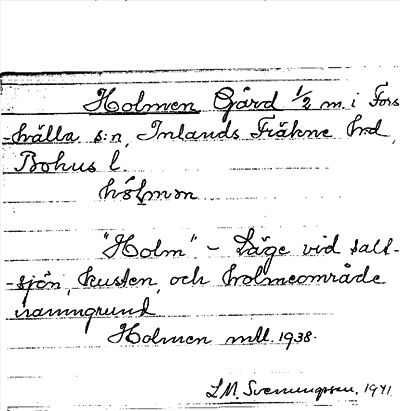 Holmen Gård 1/2 m. i Fors
-hälla s:n, Inlands Fräkne hd,
Bohus l.
hólmən
"Holm" - Läge vid salt-
-sjön, kusten, och holmeområde
namngrund
Holmen mtl. 1938.
L.M. Svenungsson, 1941.